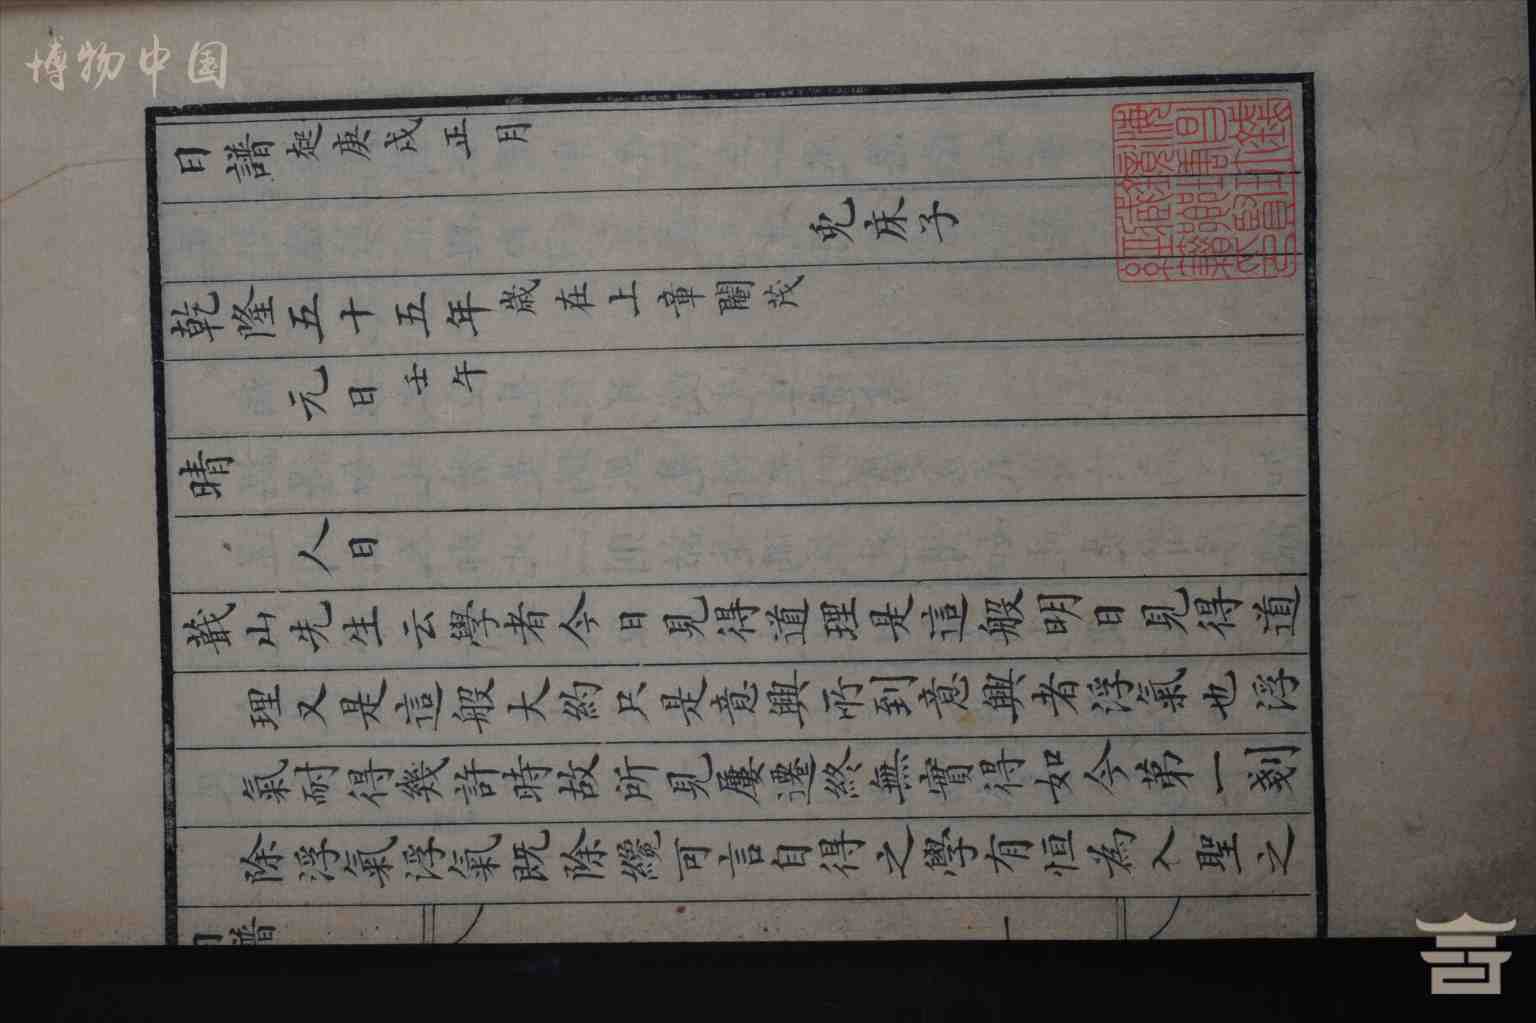 博物中国
日譜起庚戌正月
兔床子
乾隆五十五年歲在上章閹茂
元日壬午
晴
人日
蕺山先生云學者今日見得道理是這般明日見得道
理又是這般大約只是意興所到意興者浮氣也浮
氣耐得幾許時故所見屢遷終無實得如今第一刻
除浮氣浮氣既除纔可言自得之學有恒為入聖之
日譜